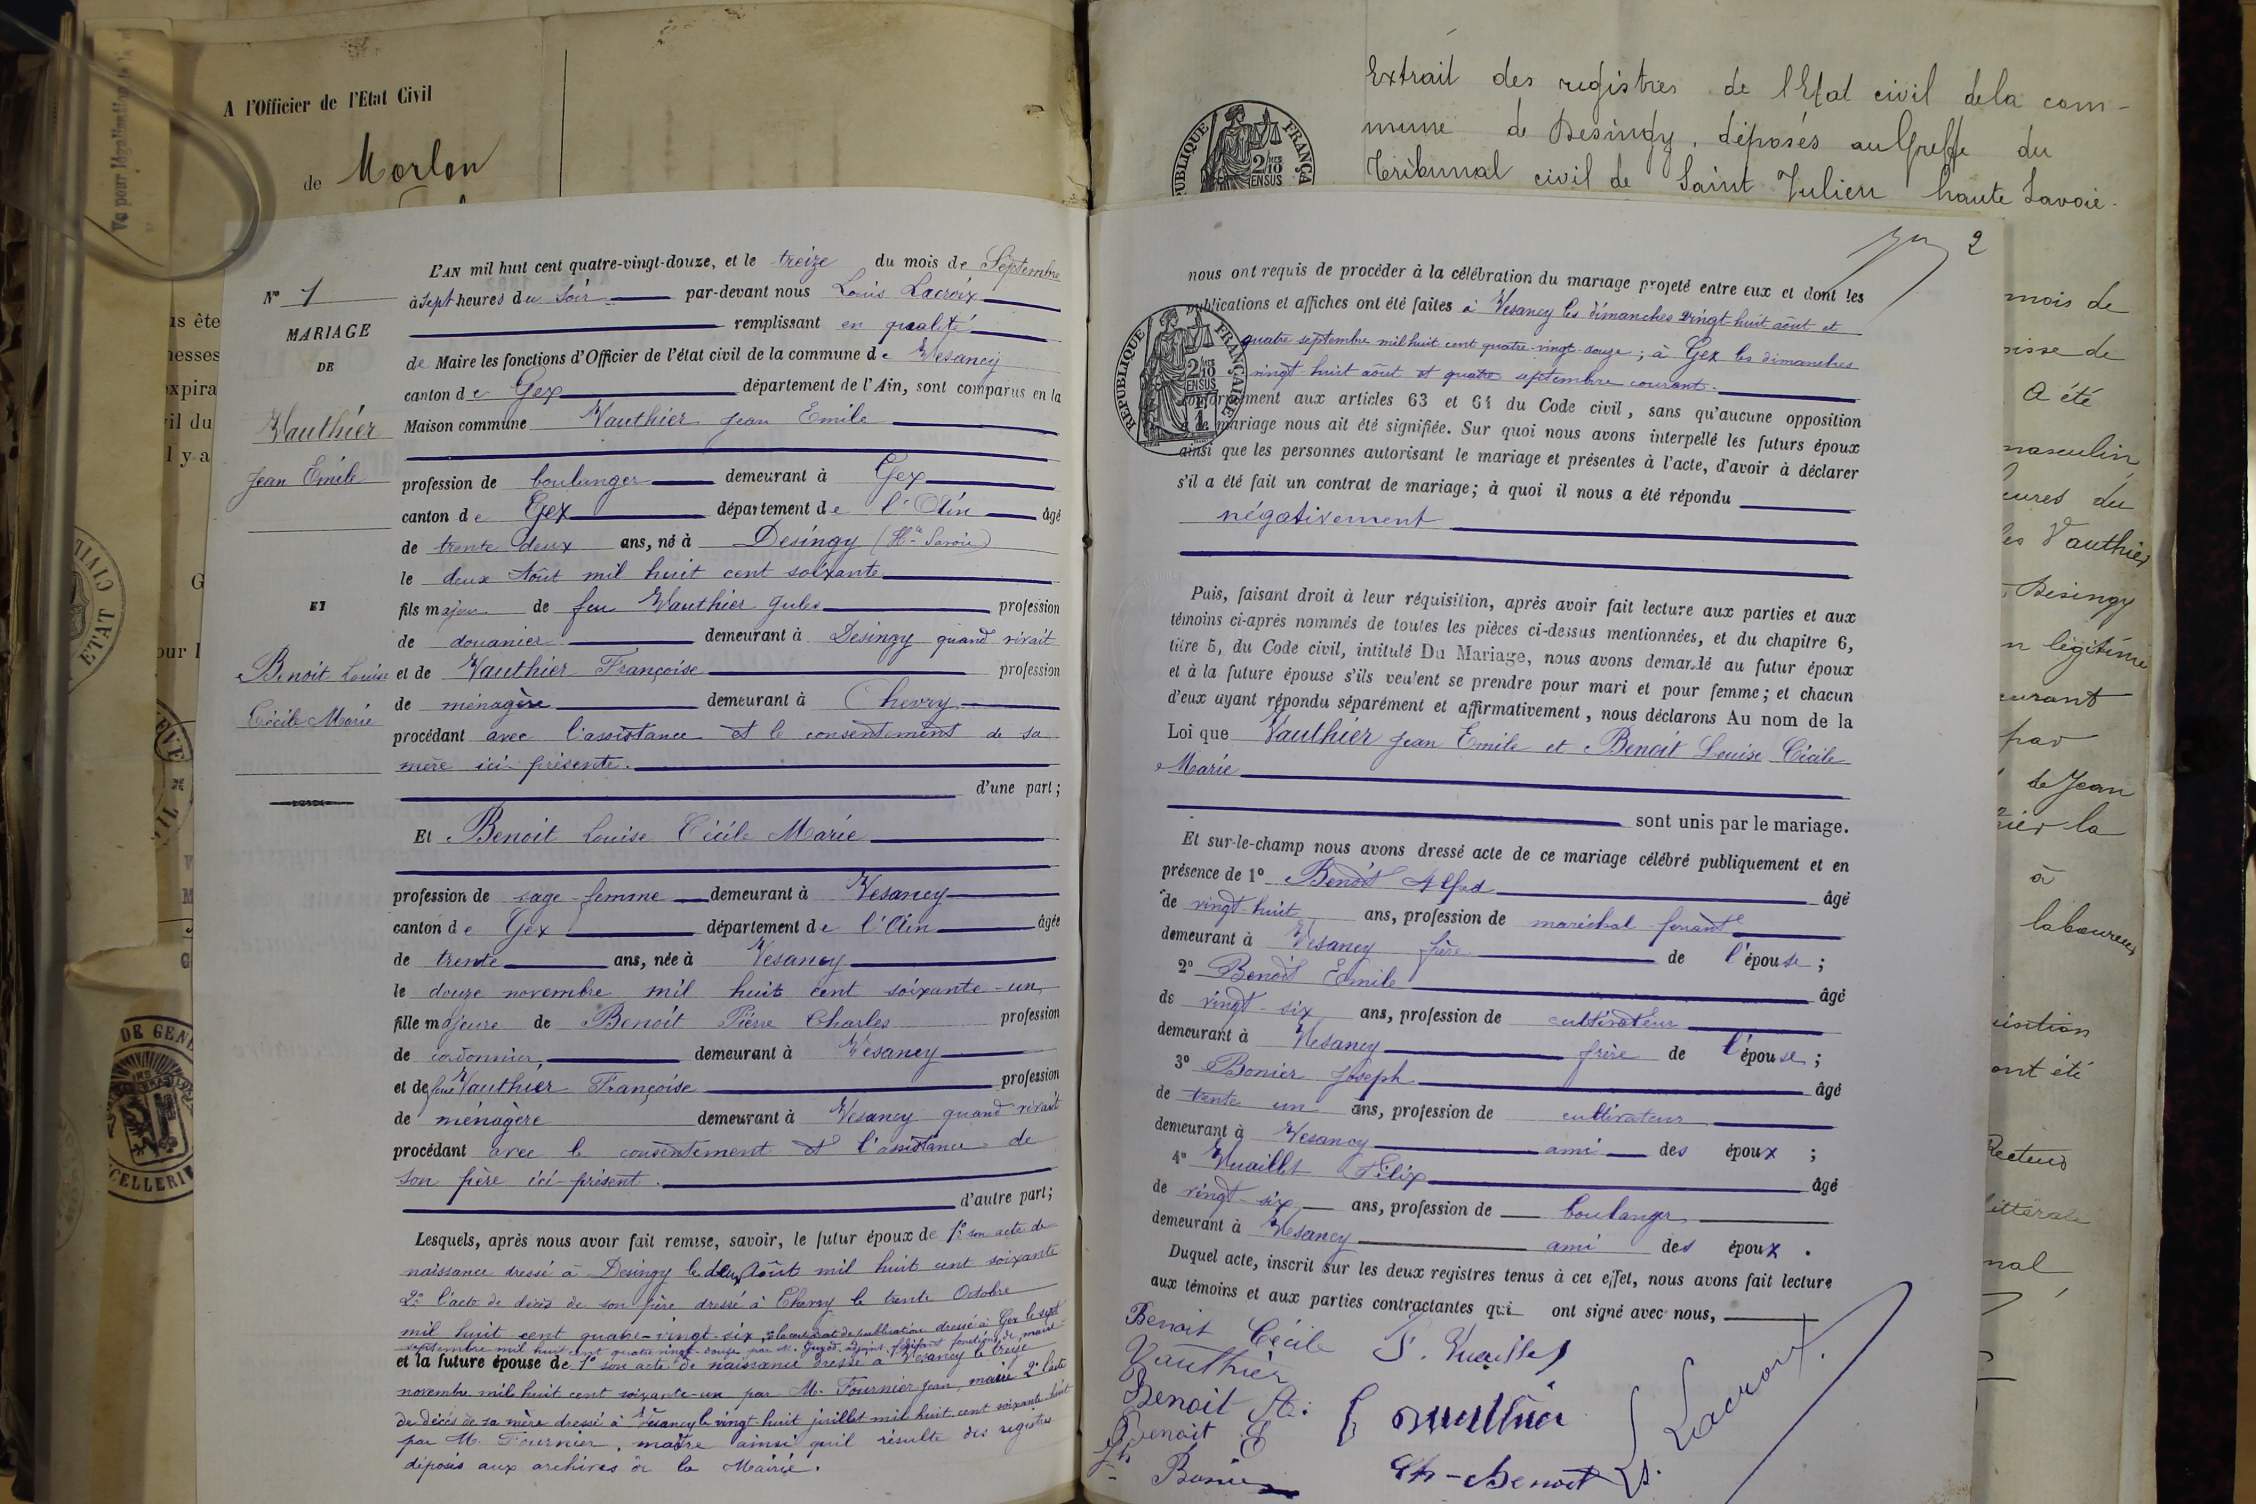 A l'Officier de l'Etat Civil
de Morlon
Vu pour légalisation
N° 1
MARIAGE
DE
Vauthier
Jean Emile
ET
Benoit Louise
Cécile Marie
L'AN mil huit cent quatre-vingt-douze, et le treize du mois de Septembre
à sept heures du soir par-devant nous Louis Lacroix
remplissant en qualité
de Maire les fonctions d'Officier de l'état civil de la commune de Vesancy
canton de Gex département de l'Ain, sont comparus en la
Maison commune Vauthier Jean Emile
profession de boulanger demeurant à Gex
canton de Gex département de l'Ain âgé
de trente deux ans, né à Desingy (Hte Savoie)
le deux Août mil huit cent soixante
fils majeur de feu Vauthier Jules profession
de douanier demeurant à Desingy quand vivait
et de Vauthier Françoise profession
de ménagère demeurant à Chevry
procédant avec l'assistance et le consentement de sa
mère ici présente.
d'une part;
Et Benoit Louise Cécile Marie
profession de sage-femme demeurant à Vesancy
canton de Gex département de l'Ain âgée
de trente ans, née à Vesancy
le douze novembre mil huit cent soixante-un
fille majeure de Benoit Pierre Charles profession
de cordonnier demeurant à Vesancy
et de feue Vauthier Françoise profession
de ménagère demeurant à Vesancy quand vivait
procédant avec le consentement et l'assistance de
son père ici-présent.
d'autre part;
Lesquels, après nous avoir fait remise, savoir, le futur époux de 1° son acte de
naissance dressé à Desingy le deux Août mil huit cent soixante
2° l'acte de décès de son père dressé à Chevry le trente Octobre
mil huit cent quatre-vingt-six, 3° le certificat de publication dressé à Gex le sept
septembre mil huit cent quatre vingt-douze par M. adjoint, faisant fonctions de maire
et la future épouse de 1° son acte de naissance dressé à Vesancy le treize
novembre mil huit cent soixante-un par M. Fournier Jean, maire 2° l'acte
de décès de sa mère dressé à Vesancy le vingt-huit juillet mil huit cent soixante-huit
par M. Fournier, maire ainsi qu'il résulte des registres
déposés aux archives de la Mairie.
Extrait des registres de l'Etat civil de la com-
mune de Desingy, déposés au Greffe du
Tribunal civil de Saint Julien haute Savoie.
2
nous ont requis de procéder à la célébration du mariage projeté entre eux et dont les
publications et affiches ont été faites à Vesancy les dimanches vingt-huit août et
quatre septembre mil huit cent quatre-vingt-douze; à Gex les dimanches
vingt-huit août et quatre septembre courant.
conformément aux articles 63 et 64 du Code civil, sans qu'aucune opposition
à ce mariage nous ait été signifiée. Sur quoi nous avons interpellé les futurs époux
ainsi que les personnes autorisant le mariage et présentes à l'acte, d'avoir à déclarer
s'il a été fait un contrat de mariage; à quoi il nous a été répondu
négativement
Puis, faisant droit à leur réquisition, après avoir fait lecture aux parties et aux
témoins ci-après nommés de toutes les pièces ci-dessus mentionnées, et du chapitre 6,
titre 5, du Code civil, intitulé Du Mariage, nous avons demandé au futur époux
et à la future épouse s'ils veulent se prendre pour mari et pour femme; et chacun
d'eux ayant répondu séparément et affirmativement, nous déclarons Au nom de la
Loi que Vauthier Jean Emile et Benoit Louise Cécile
Marie
sont unis par le mariage.
Et sur-le-champ nous avons dressé acte de ce mariage célébré publiquement et en
présence de 1° Benoit Alfred âgé
de vingt-huit ans, profession de maréchal-ferrant
demeurant à Vesancy frère de l'épouse;
2° Benoit Emile âgé
de vingt-six ans, profession de cultivateur
demeurant à Vesancy frère de l'épouse;
3° Bonier Joseph âgé
de trente un ans, profession de cultivateur
demeurant à Vesancy ami des époux;
4° Vuaillet Félix âgé
de vingt-six ans, profession de boulanger
demeurant à Vesancy ami des époux.
Duquel acte, inscrit sur les deux registres tenus à cet effet, nous avons fait lecture
aux témoins et aux parties contractantes qui ont signé avec nous,
Benoit Cécile F. Vuaillet
Vauthier
Benoit
Benoit E
Bonier
Ch-Benoit Ls. Lacroix
RÉPUBLIQUE FRANÇAISE
mois de
A été
masculin
Vauthier
Desingy
légitime
par
de Jean
la
à
laboureur
ont été